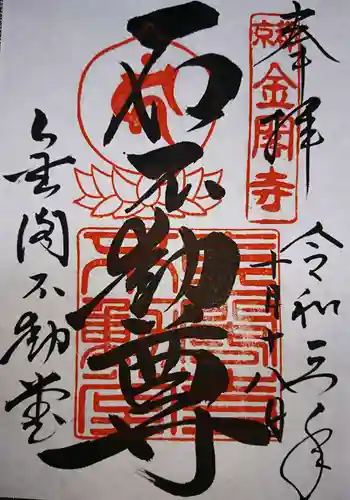 奉拝
京都
金閣寺
令和三年
十月十八日
石不動尊
金閣不動堂